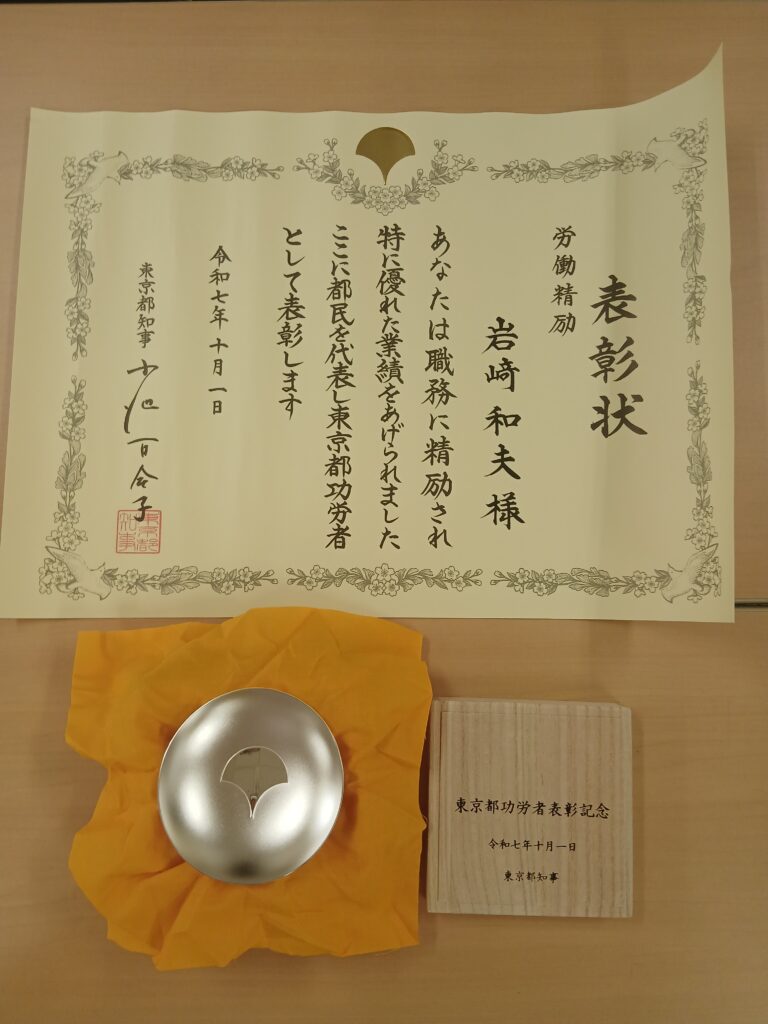 表彰状
労働精励
岩﨑和夫様
あなたは職務に精励され
特に優れた業績をあげられました
ここに都民を代表し東京都功労者
として表彰します
令和七年十月一日
東京都知事 小池百合子
東京都知事
東京都功労者表彰記念
令和七年十月一日
東京都知事